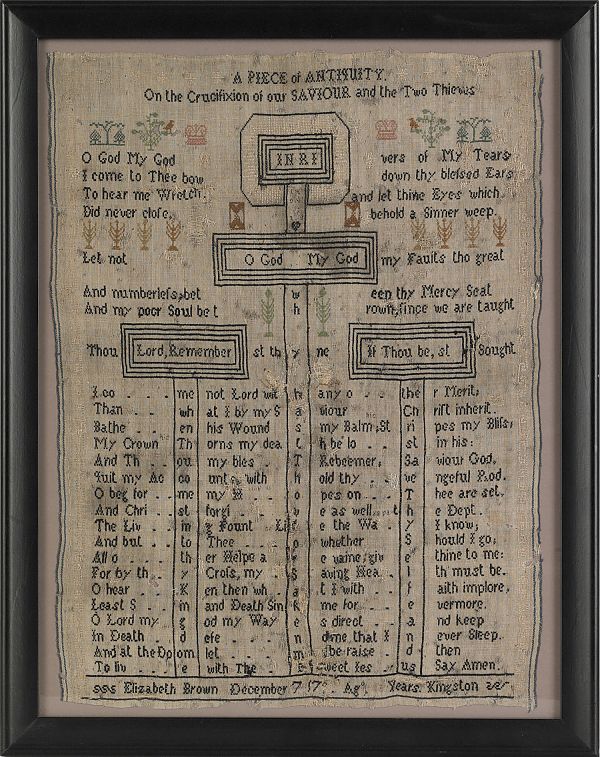 A PIECE of ANTIQUITY
On the Crucifixion of our SAVIOUR and the Two Thieves
INRI
O God My God vers of My Tears
I come to Thee bow down thy blessed Ears
To hear me Wretch. and let thine Eyes which.
Did never close, behold a Sinner weep.
Let not O God My God my Faults tho great
And numberless, bet w een thy Mercy Seat
And my poor Soul be t h rown, since we are taught
Thou Lord, Remember st th y ne If Thou be, st Sought
I co me not Lord wit h any o the r Merit;
Than wh at I by my S a viour Ch rist inherit.
Bathe en his Wound s my Balm, St ri pes my Bliss;
My Crown Th orns my dea t h be lo st in his:
And Th ou my bles T Redeemer, Sa viour God,
Quit my Ac co unt with hold thy ve ngeful Rod.
O beg for me my H o pes on T hee are set.
And Chri st forgi ve as well t h e Dept.
The Liv in g Fount Life e the Wa Y I know;
And but to Thee o whether S hould I go;
All o th er Helpe a r e vaine; giv e thine to me:
For by th y Cross, my S aving Hea l th must be.
O hear K en then wh a t I with f aith implore,
Least S in and Death Sin k me for e vermore.
O Lord my g od my Way e s direct a nd keep
In Death d efe n dme that I n ever Sleep.
And at the Do om let m be raise d then
To liv e with The E Sweet Jes us Say Amen.
Elizabeth Brown December 7 17 Ag Years. Kingston